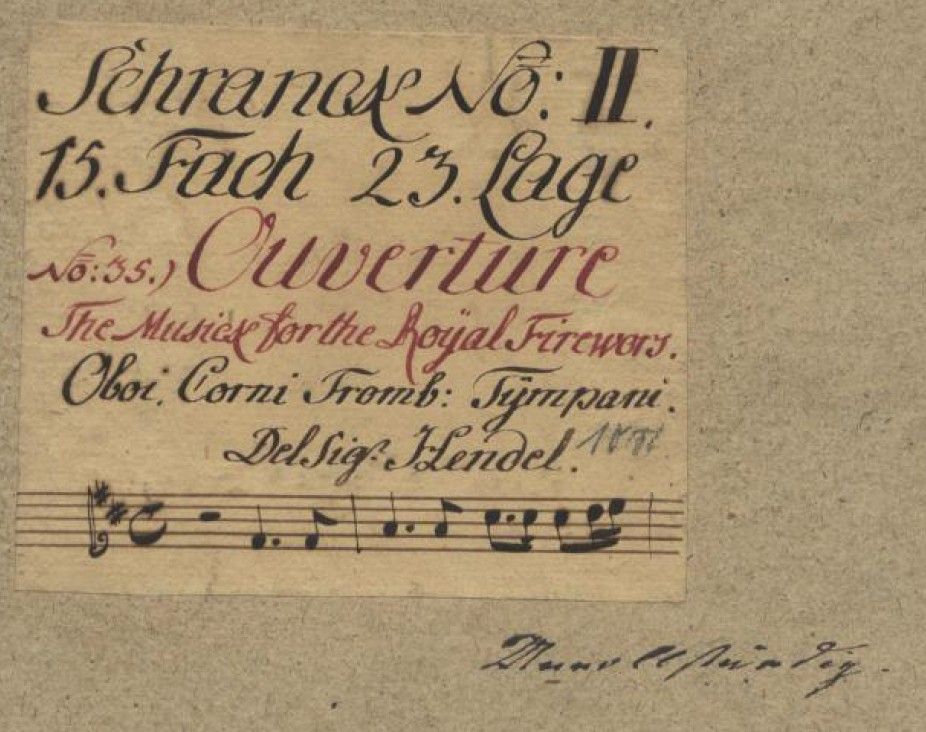 Schranck No: II.
15. Fach 23. Lage
No: 35.) Ouverture
The Musick for the Royal Firewors.
Oboi. Corni Tromb: Tÿmpani.
Del Sigr. Hendel.
Unvollständig.